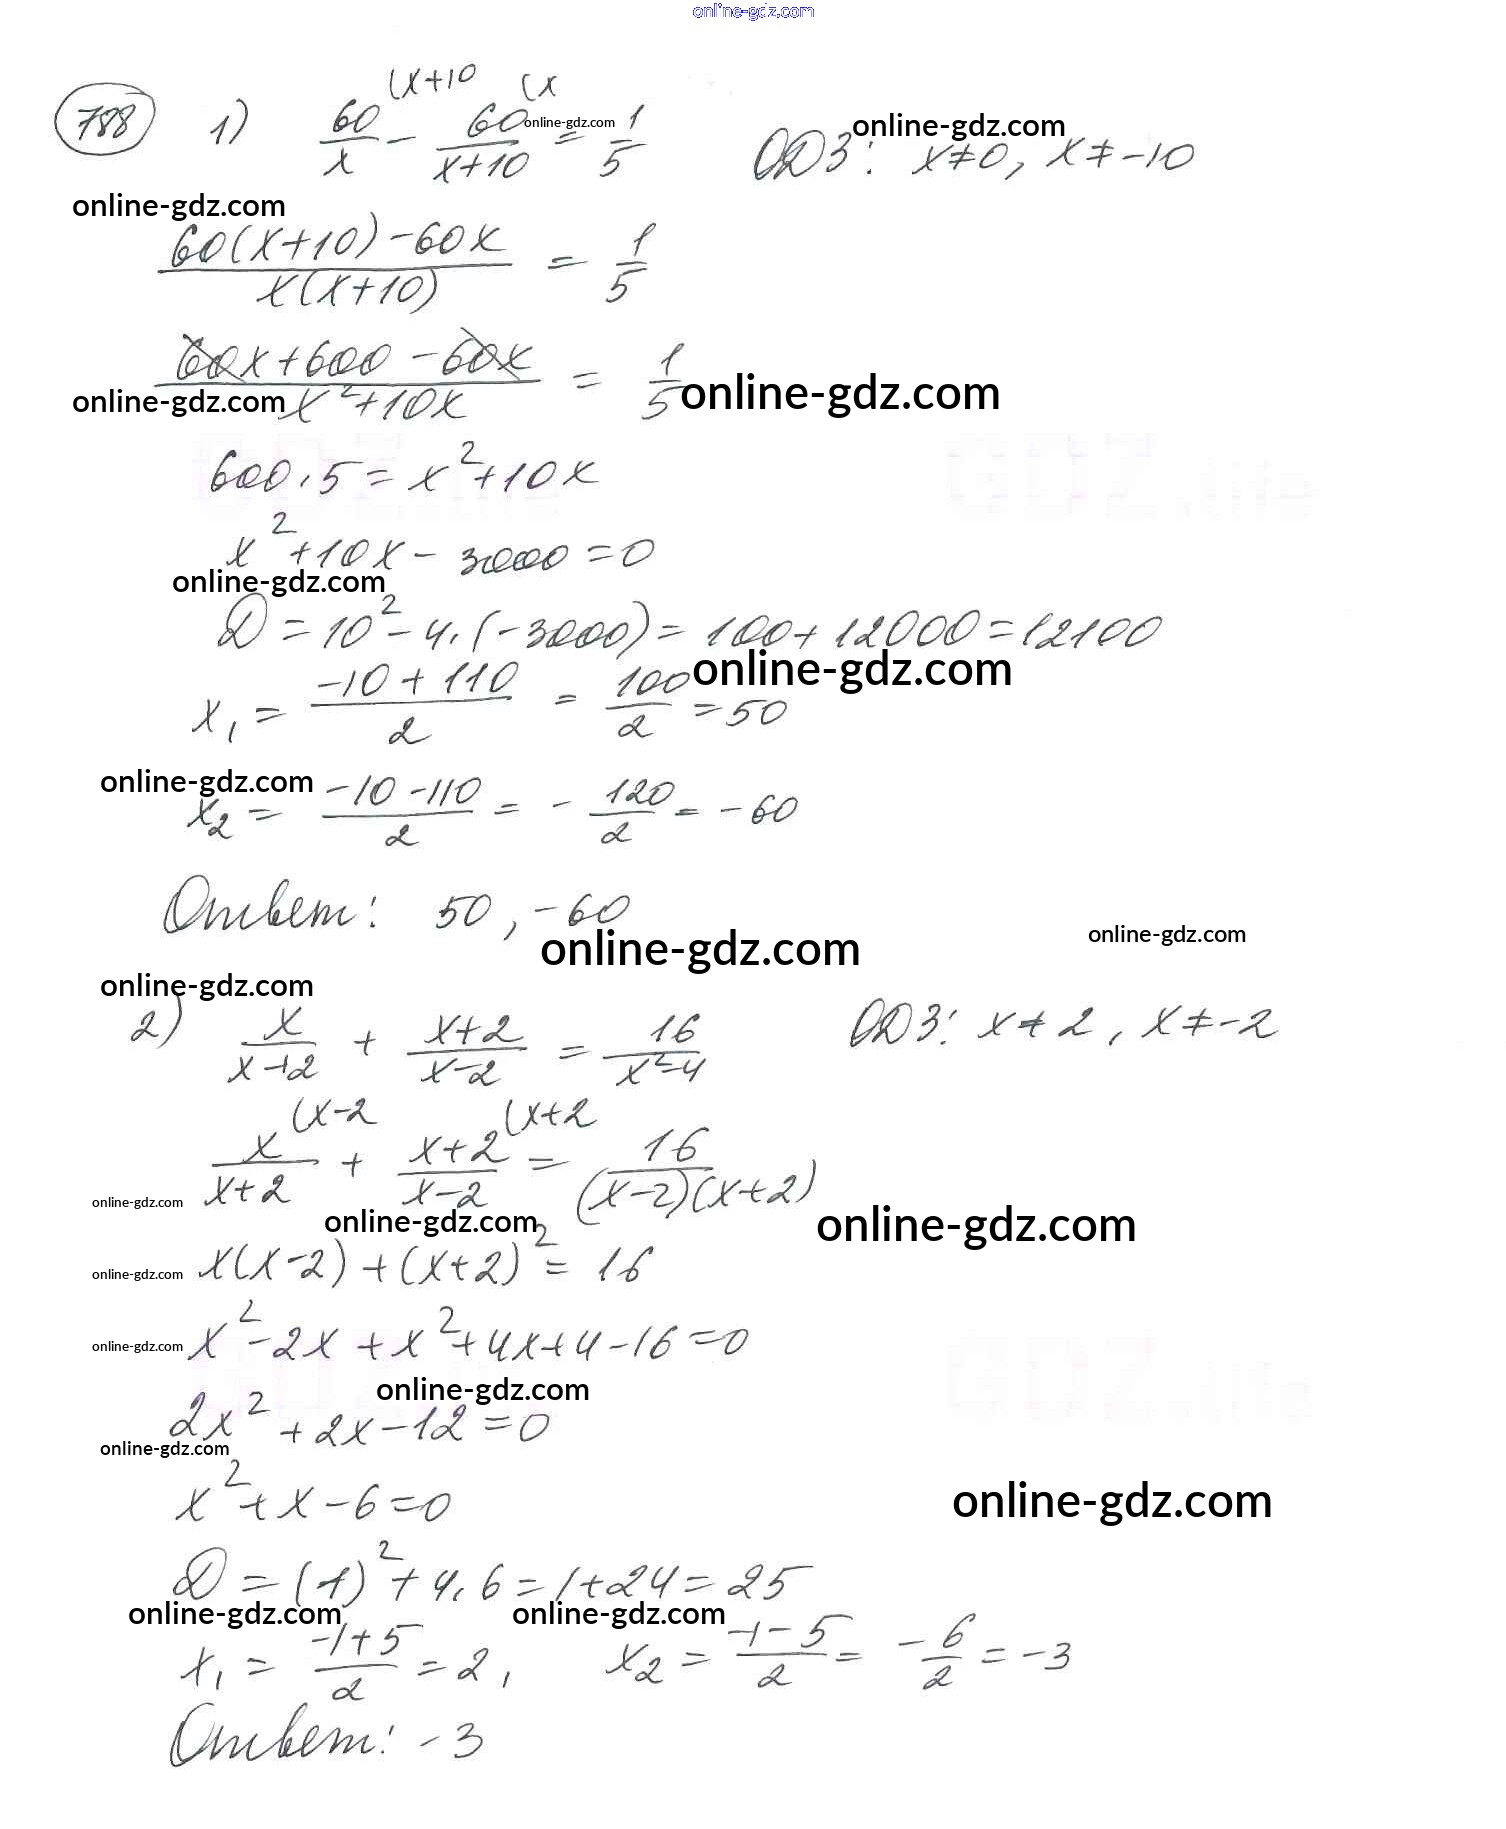 online-gdz.com
788 1) 60/x (x+10 - 60/(x+10) (x = 1/5 ОДЗ: x≠0, x≠-10
online-gdz.com
online-gdz.com
online-gdz.com
(60(x+10)-60x)/(x(x+10)) = 1/5
(60x+600-60x)/(x²+10x) = 1/5
online-gdz.com
online-gdz.com
600·5=x²+10x
x²+10x-3000=0
online-gdz.com
D=10²-4·(-3000)=100+12000=12100
online-gdz.com
x₁=(-10+110)/2=100/2=50
online-gdz.com
x₂=(-10-110)/2=-120/2=-60
Ответ: 50, -60
online-gdz.com
online-gdz.com
online-gdz.com
2) x/(x+2) + (x+2)/(x-2) = 16/(x²-4) ОДЗ: x≠2, x≠-2
x/(x+2) (x-2 + (x+2)/(x-2) (x+2 = 16/((x-2)(x+2))
online-gdz.com
online-gdz.com
online-gdz.com
online-gdz.com x(x-2)+(x+2)²=16
online-gdz.com x²-2x+x²+4x+4-16=0
online-gdz.com
2x²+2x-12=0
online-gdz.com
x²+x-6=0
online-gdz.com
D=(1)²+4·6=1+24=25
online-gdz.com
online-gdz.com
x₁=(-1+5)/2=2, x₂=(-1-5)/2=-6/2=-3
Ответ: -3